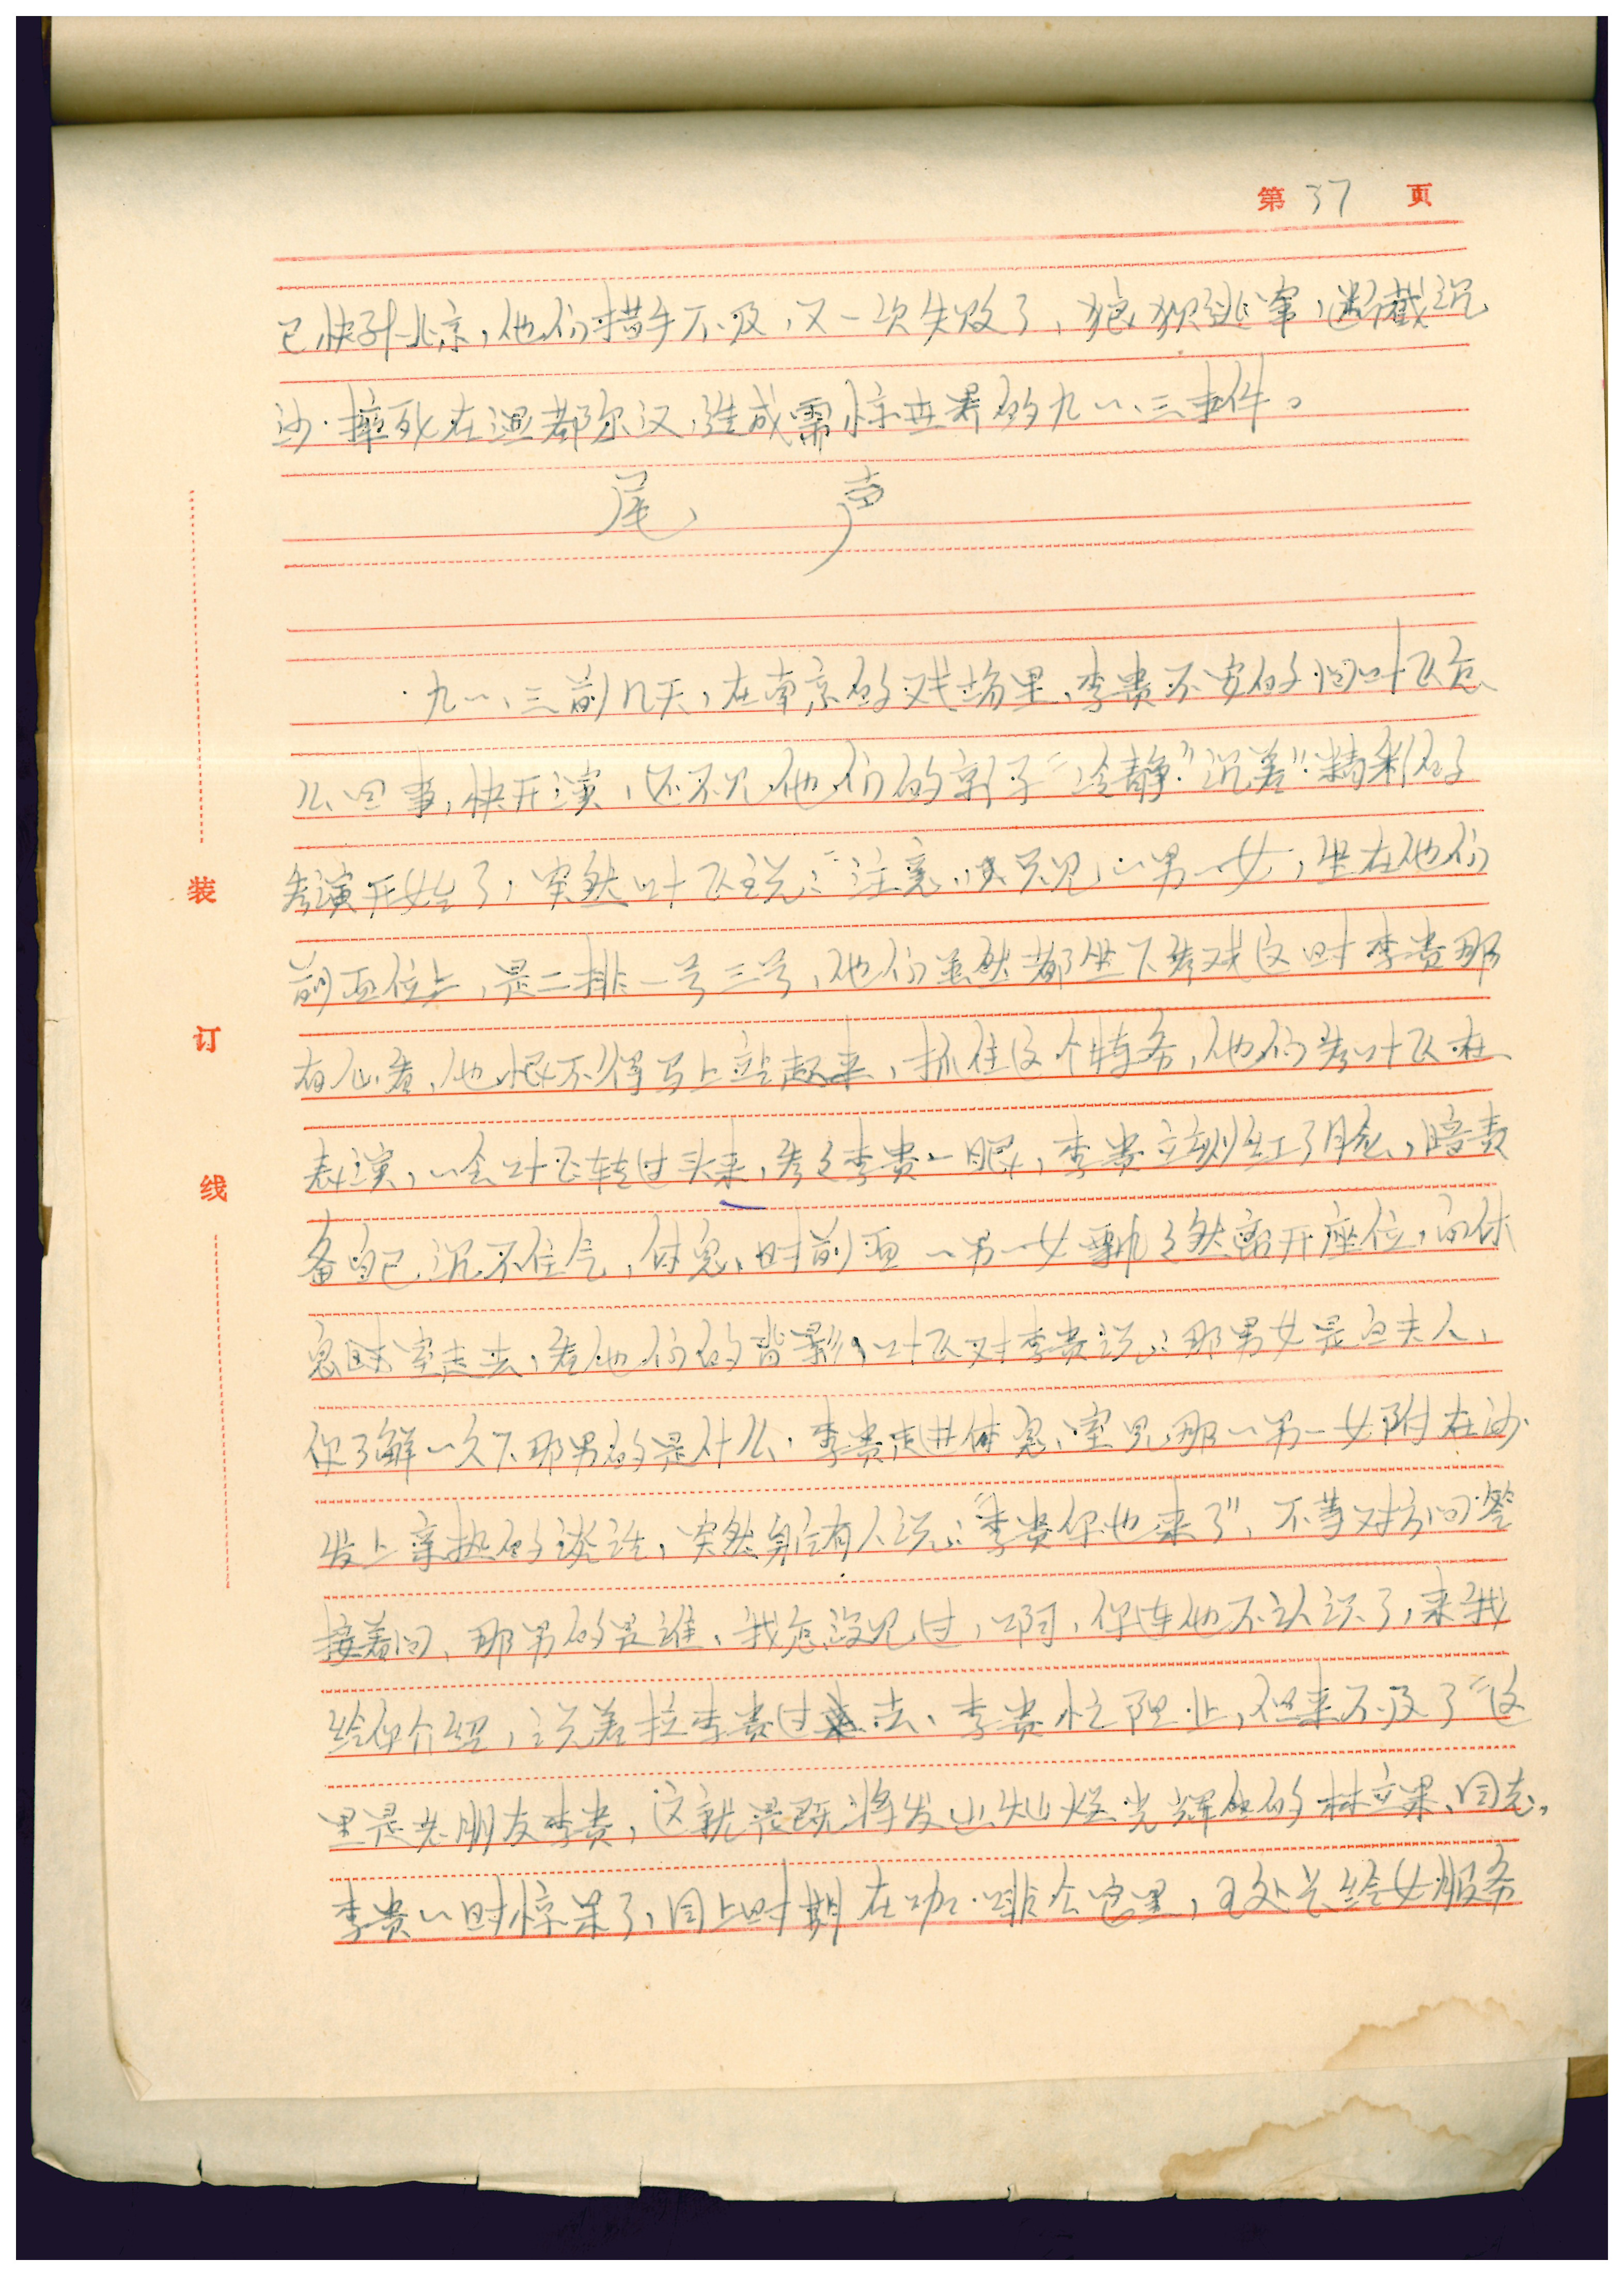 第 37 页
已快到北京，他们措手不及，又一次失败了，狼狈逃窜，断戟沉
沙．摔死在温都尔汉，造成震惊世界的九一、三事件。
尾 声
九一、三前几天，在南京的戏场里，李贵不安的问叶飞怎
么回事，快开演，还不见他们的影子“冷静”“沉着”精彩的
表演开始了，突然叶飞说：“注意，只见一男一女，坐在他们
前面位上，是二排一号三号，他们虽然都坐下看戏这时李贵那
有心看，他恨不得马上站起来，抓住这个特务，他们看叶飞在
表演，一会叶飞转过头来，看了李贵一眼，李贵立刻红了脸，暗责
备自己沉不住气，休息，时前面一男一女飘了然离开座位，向休
息室走去，看他们的背影，叶飞对李贵说：那男女是白夫人，
你了解一下那男的是什么．李贵走进休息室见那一男一女附在沙
发上亲热的谈话，突然身后有人说：“李贵你也来了”，不等对方回答
接着问，那男的是谁，我怎没见过，啊，你连他不认识了，来我
给你介绍，说着拉李贵过去，李贵忙阻止，但来不及了“这
里是老朋友李贵，这就是既将发出灿烂光辉的林立果同志，
李贵一时惊呆了，同上时期在咖啡公馆里，王处长给女服务
装
订
线